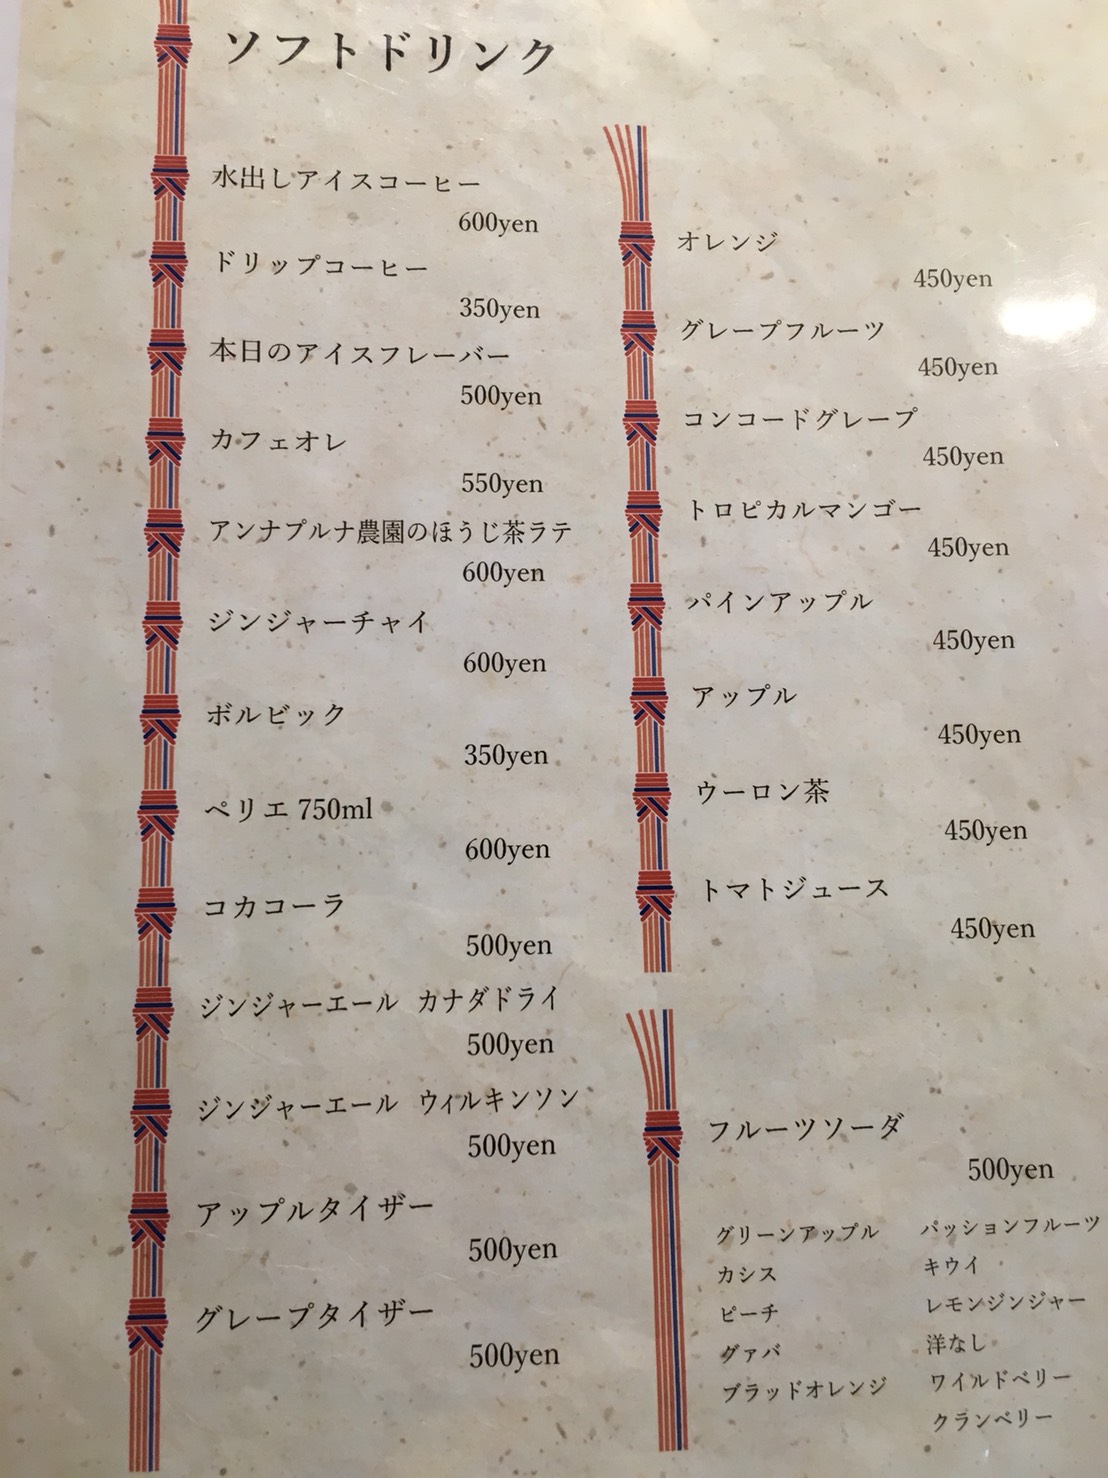 ソフトドリンク
水出しアイスコーヒー
600yen
ドリップコーヒー
350yen
本日のアイスフレーバー
500yen
カフェオレ
550yen
アンナプルナ農園のほうじ茶ラテ
600yen
ジンジャーチャイ
600yen
ボルビック
350yen
ペリエ 750ml
600yen
コカコーラ
500yen
ジンジャーエール カナダドライ
500yen
ジンジャーエール ウィルキンソン
500yen
アップルタイザー
500yen
グレープタイザー
500yen
オレンジ
450yen
グレープフルーツ
450yen
コンコードグレープ
450yen
トロピカルマンゴー
450yen
パインアップル
450yen
アップル
450yen
ウーロン茶
450yen
トマトジュース
450yen
フルーツソーダ
500yen
グリーンアップル
カシス
ピーチ
グァバ
ブラッドオレンジ
パッションフルーツ
キウイ
レモンジンジャー
洋なし
ワイルドベリー
クランベリー